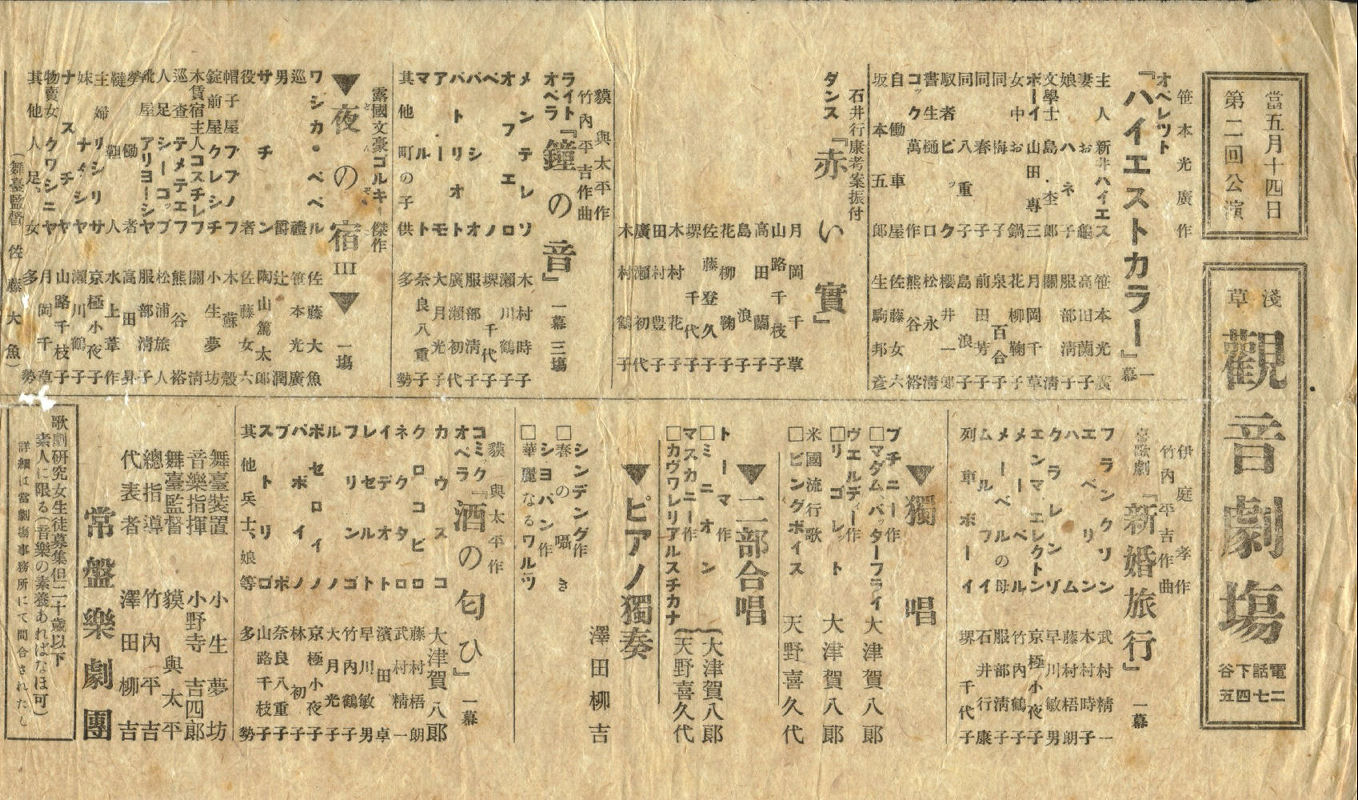 當五月十四日
第二回公演
淺草
觀音劇場
電話下谷
二七四五
笹本光廣作
オペレット
『ハイエストカラー』一幕
主人 新井ハイエス 笹本光廣
娘 ハネ子 服部淸子
文學士 島 杢郎 關 淸
ボーイ 山田專三 月岡千草
女中 お鍋 花柳鞠子
同 お梅 泉 百合子
同 お春 前田芳子
同 八重子 島 浪子
取者 ビック 櫻井一郞
書生 樋口 松永淸
コック 萬作 熊谷裕
自働車屋 佐藤女六
坂本五郎 生駒邦彦
石井行康考案振付
ダンス『赤い實』
月岡千草
山路千枝子
高田蘭子
島 浪子
花柳鞠子
佐藤登久子
堺 千代子
木村花子
田村豊子
廣瀬初代
木村鶴子
貘與太平作
竹內平吉作曲
ライトオペラ『鐘の音』一幕三場
メンテレソ 木村時子
オフエロ 瀬川鶴子
ベノ 堺 千代子
パシオ 服部淸子
パトリオト 廣瀬初代
アークモ 大月光子
マルト 奈良八重子
其他町の子供 多勢
露國文豪ゴルキー傑作
▼夜の宿III▼ 一場
ワシカ・ペペル 佐藤大魚
巡禮 笹本光廣
男爵 辻 潤
サチン 陶山篤太郎
役者 佐藤女六
帽子屋ブブノフ 木蘇穀
錠前屋クレシチ 小生夢坊
木賃宿主人コスチレフ 關 淸
巡査テメテエフ 熊谷裕
人足シーコップ 松浦旅人
靴屋アリヨーシヤ 服部淸子
勞働者 高田昇
韃靼人 水上葦作
主婦リシリサ 京極小夜子
妹ナタシヤ 瀬川鶴子
ナスチヤ 山路千枝子
物賣女クワシニヤ 月岡千草
其他人足、女 多勢
(舞臺監督 佐藤大魚)
伊庭孝作
竹內平吉作曲
喜歌劇『新婚旅行』一幕
フランクリン 武村精一
エベリン 木村時子
ハム 藤村梧朗
クラレンゾ 早川敏男
エンマエレクトン 京極小夜子
メーベル 竹內鶴子
メーベルの母 服部淸子
ムルフイ 石井行康
列車ボーイ 堺 千代子
▼獨唱
プチニー作
□マダムバッターフライ 大津賀八郎
ヴエルデー作
□リゴレット 大津賀八郎
米國流行歌
□ピンクボイス 天野喜久代
▼二部合唱
トーマ作
□ミニオン
マスカニー作
□カヴワレリアルスチカナ
大津賀八郎
天野喜久代
▼ピアノ獨奏
澤田柳吉
シンデング作
□春の囁き
シヨパン作
□華麗なるワルツ
貘與太平作
コミックオペラ『酒の匂ひ』一幕
カウスコ 大津賀八郎
クロコピロ 藤村梧朗
ネクタロ 武村精一
イデオト 濱田卓
レセルト 早川敏男
フリンゴ 竹內鶴子
ルノ 大月光子
ポセロイノ 京極小夜子
パボイ 林 初子
ブンポ 奈良八重子
ストリゴ 山路千枝子
其他兵士、娘等 多勢
舞臺裝置 小生夢坊
音樂指揮 小野寺吉四郎
舞臺監督 貘與太平
總指導 竹內平吉
代表者 澤田柳吉
常盤樂劇團
歌劇研究女生徒募集但二十歲以下
素人に限る(音樂の素養あればなほ可)
詳細は當劇塲事務所にて問合されたし